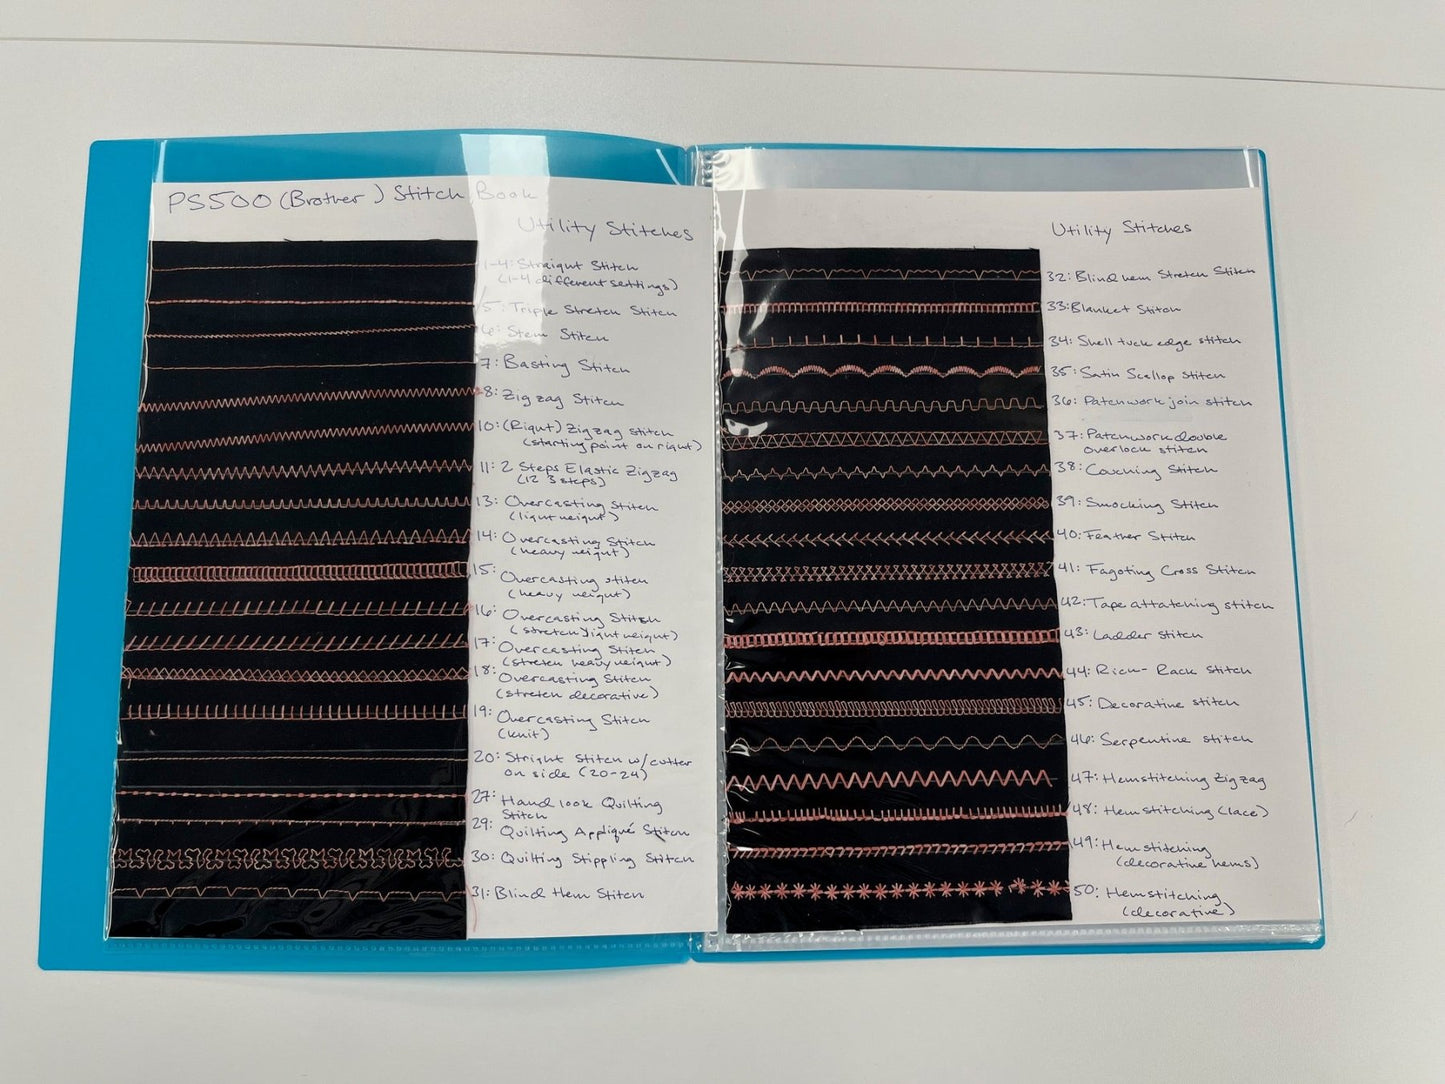 PS500 (Brother) Stitch Book
Utility Stitches
1-4: Straight Stitch
(1-4 different settings)
5: Triple Stretch Stitch
6: Stem Stitch
7: Basting Stitch
8: Zigzag Stitch
10: (Right) Zigzag Stitch
(starting point on right)
11: 2 Steps Elastic Zigzag
(12 3 steps)
13: Overcasting Stitch
(lightweight)
14: Overcasting Stitch
(heavy weight)
15: Overcasting stitch
(heavy weight)
16: Overcasting Stitch
(stretch lightweight)
17: Overcasting Stitch
(stretch heavyweight)
18: Overcasting Stitch
(stretch decorative)
19: Overcasting Stitch
(knit)
20: Stright Stitch w/cutter
on side (20-24)
27: Hand look Quilting
Stitch
29: Quilting Appliqué Stitch
30: Quilting Stippling Stitch
31: Blind Hem Stitch
Utility Stitches
32: Blind hem Stretch Stitch
33: Blanket Stitch
34: Shell tuck edge stitch
35: Satin Scallop Stitch
36: Patchwork join stitch
37: Patchwork double
overlock stitch
38: Couching Stitch
39: Smocking Stitch
40: Feather Stitch
41: Fagoting Cross Stitch
42: Tape attatching stitch
43: Ladder stitch
44: Rick-Rack stitch
45: Decorative stitch
46: Serpentine stitch
47: Hemstitching Zigzag
48: Hemstitching (lace)
49: Hemstitching
(decorative hems)
50: Hemstitching
(decorative)